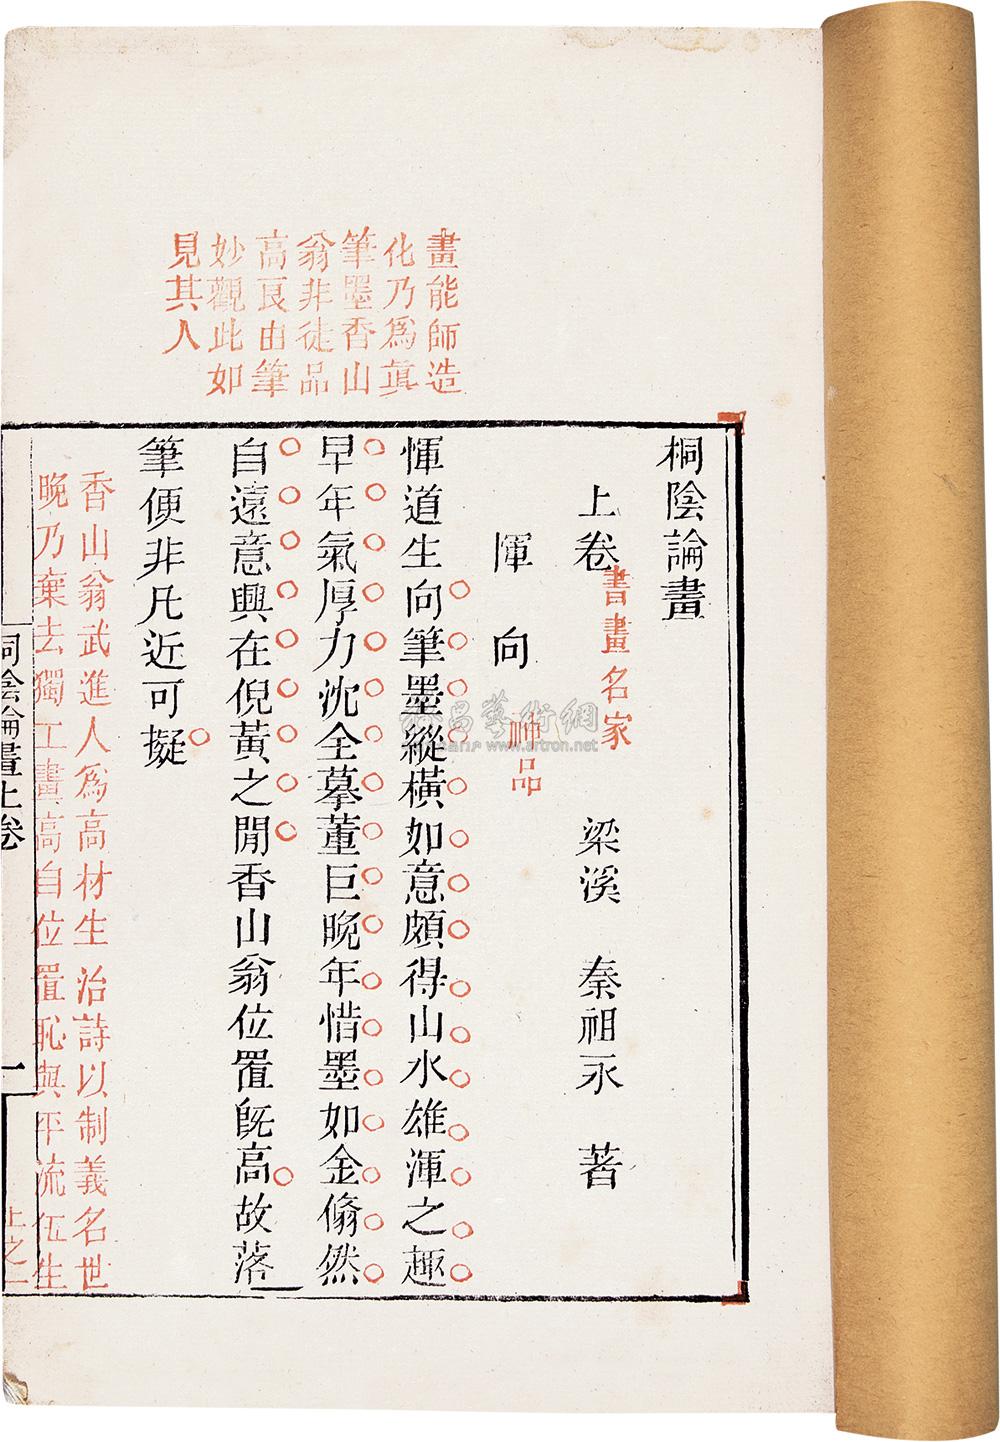 畫能師造
化乃爲眞
筆墨香山
翁非徒品
高良由筆
妙觀此如
見其人
桐陰論畫
上卷 書畫名家 梁溪 秦祖永 著
惲向 神品
惲道生向筆墨縱橫如意頗得山水雄渾之趣
早年氣厚力沈全摹董巨晚年惜墨如金翛然
自遠意興在倪黃之閒香山翁位置旣高故落
筆便非凡近可擬
香山翁武進人爲高材生治詩以制義名世
晚乃棄去獨工畫高自位置恥與平流伍生
桐陰論畫上卷
一
上之一
www.artron.net